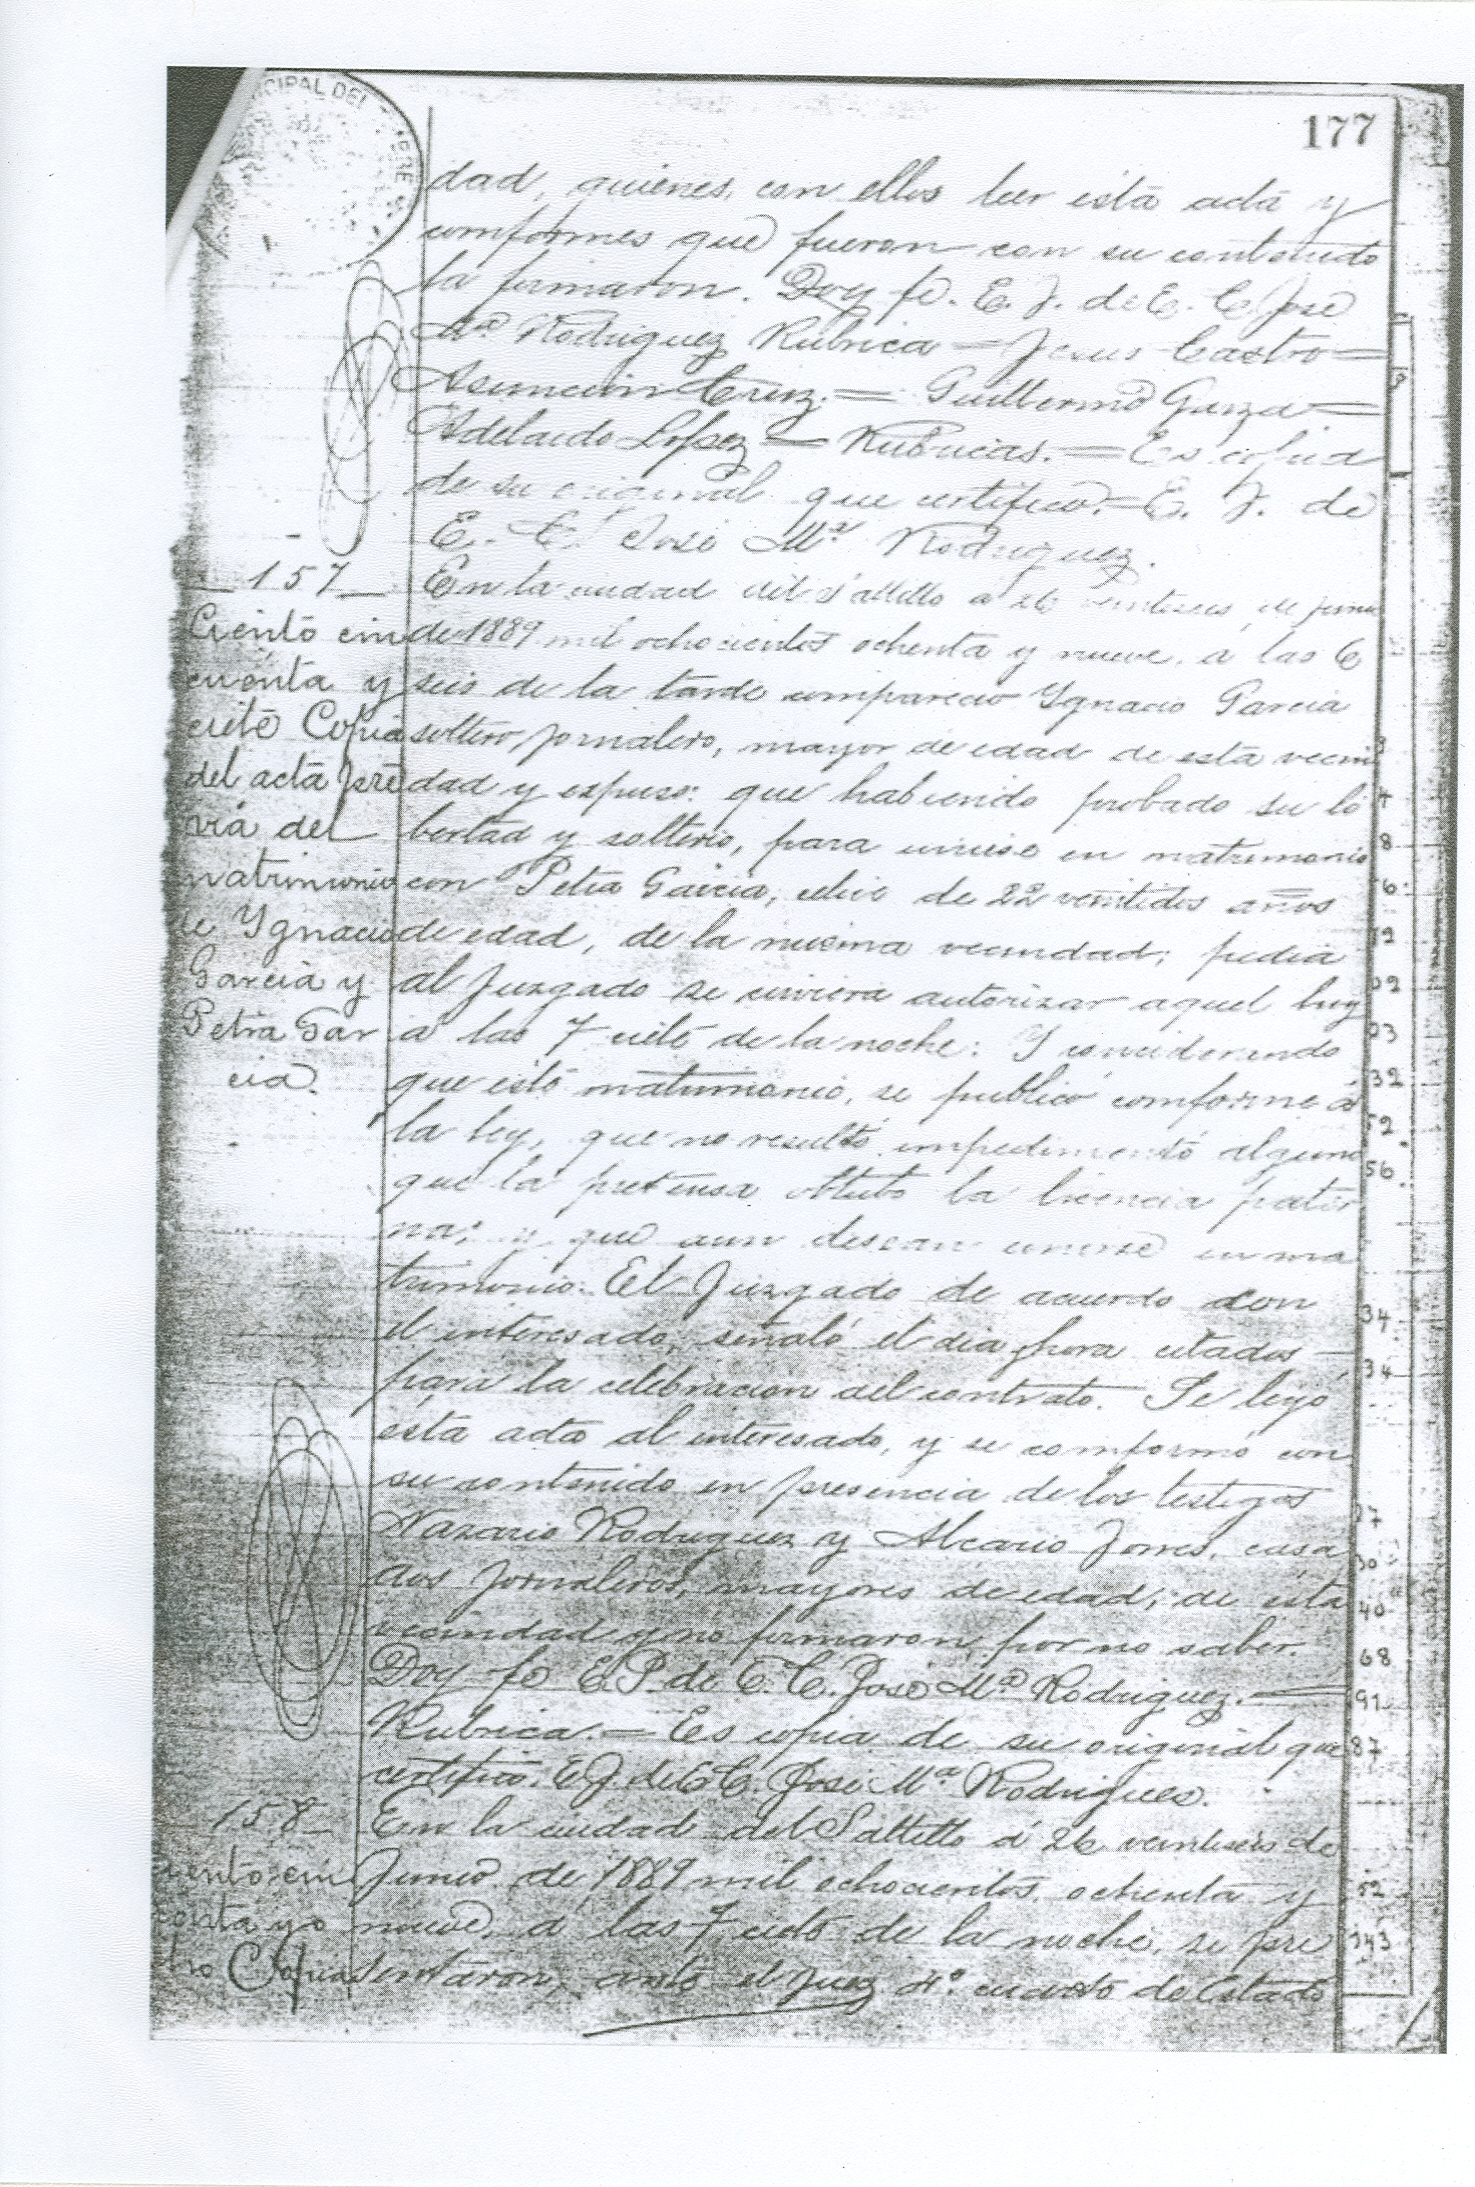 CIPAL DEL
177
dad, quienes, con ellos leer ésta acta y
conformes que fueron con su contenido
la firmaron. Doy fé. E. J. de E. C. José
Ma Rodriguez Rúbrica = Jesus Castro =
Asuncion Cruz. = Guillermo Garza =
Adelaido Lopez = Rubricas. = Es copia
de su original que certifico. = E. J. de
E. C. José Ma Rodriguez.
_ 157 _
Ciento cin
cuenta y
ciete Copia
del acta pre
via del
matrimonio
de Ygnacio
Garcia y
Petra Gar
cia.
En la ciudad del Saltillo á 26 veintiseis de junio
de 1889 mil ochocientos ochenta y nueve, á las 6
seis de la tarde comparecio Ygnacio Garcia
soltero jornalero, mayor de edad de esta vecin
dad y espuso: que habiendo probado su li
bertad y solteria, para unirse en matrimonio
con Petra Garcia, celive de 22 veintidos años
de edad, de la misma vecindad; pedia
al Juzgado se cirviera autorizar aquel hoy
a las 7 ciete de la noche: Y conciderando
que este matrimonio, se publicó conforme á
la ley, que no resultó impedimento alguno
que la pretensa obtubo la licencia pater
na; y que aun desean unirse en ma
trimonio: El Juzgado de acuerdo con
el interesado, señaló el dia y hora citados
para la celebracion del contrato. Se leyó
esta acta al interesado, y se conformó con
su contenido en presencia de los testigos
Nazario Rodriguez y Alcario Torres, casa
dos jornaleros, mayores de edad, de esta
vecindad y nó firmaron, por no saber.
Doy fe E. P. de E. C. José Ma Rodriguez. =
Rubrica. = Es copia de su original que
certifico. E. J. de E. C. José Ma Rodrigues.
158 _
iento cin
cuenta y o
Copia
En la ciudad del Saltillo á 26 veintiseis de
Junio de 1889 mil ochocientos ochenta y
nueve, á las 7 ciete de la noche, se pre
sentaron, ante el Juez 4o cuarto de Estado
8
6
12
02
03
32
52
56
34
34
27
30
40
68
91
87
52
343